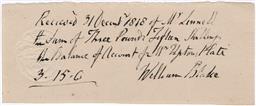 Received 31 Decembr 1818 of Mr Linnell
the Sum of Three Pounds Fifteen Shillings
the Balance of Account for Mr Upton's Plate
3.15.6 William Blake